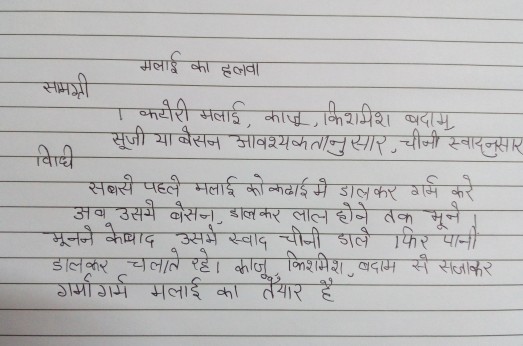 मलाई का हलवा
सामग्री
1 कटोरी मलाई, काजू, किशमिश बदाम,
सूजी या बेसन आवश्यकतानुसार, चीनी स्वादनुसार
विधि
सबसे पहले मलाई को कढाई मे डालकर गर्म करे
अब उसमे बेसन, डालकर लाल होने तक भूने।
भूनने केबाद उसमे स्वाद चीनी डाले फिर पानी
डालकर चलाते रहे। काजू, किशमिश, बदाम से सजाकर
गर्मागर्म मलाई का तैयार है